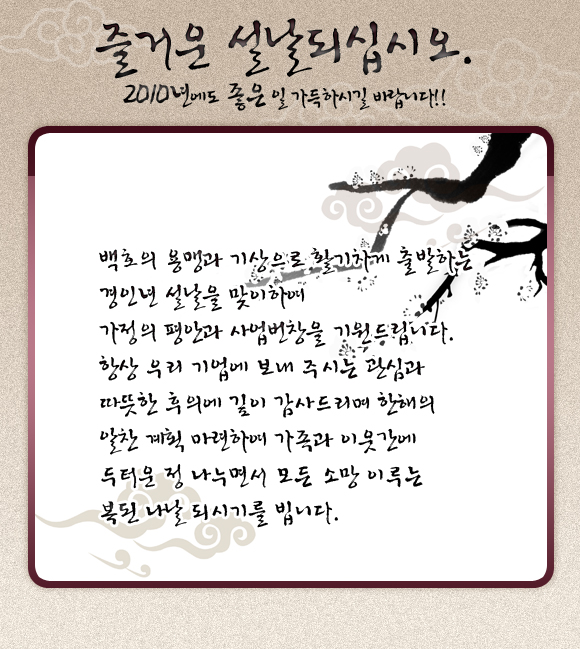 즐거운 설날되십시오.
2010년에도 좋은 일 가득하시길 바랍니다!!
백호의 용맹과 기상으로 활기차게 출발하는
경인년 설날을 맞이하여
가정의 평안과 사업번창을 기원드립니다.
항상 우리 기업에 보내 주시는 관심과
따뜻한 후의에 깊이 감사드리며 한해의
알찬 계획 마련하여 가족과 이웃간에
두터운 정 나누면서 모든 소망 이루는
복된 나날 되시기를 빕니다.